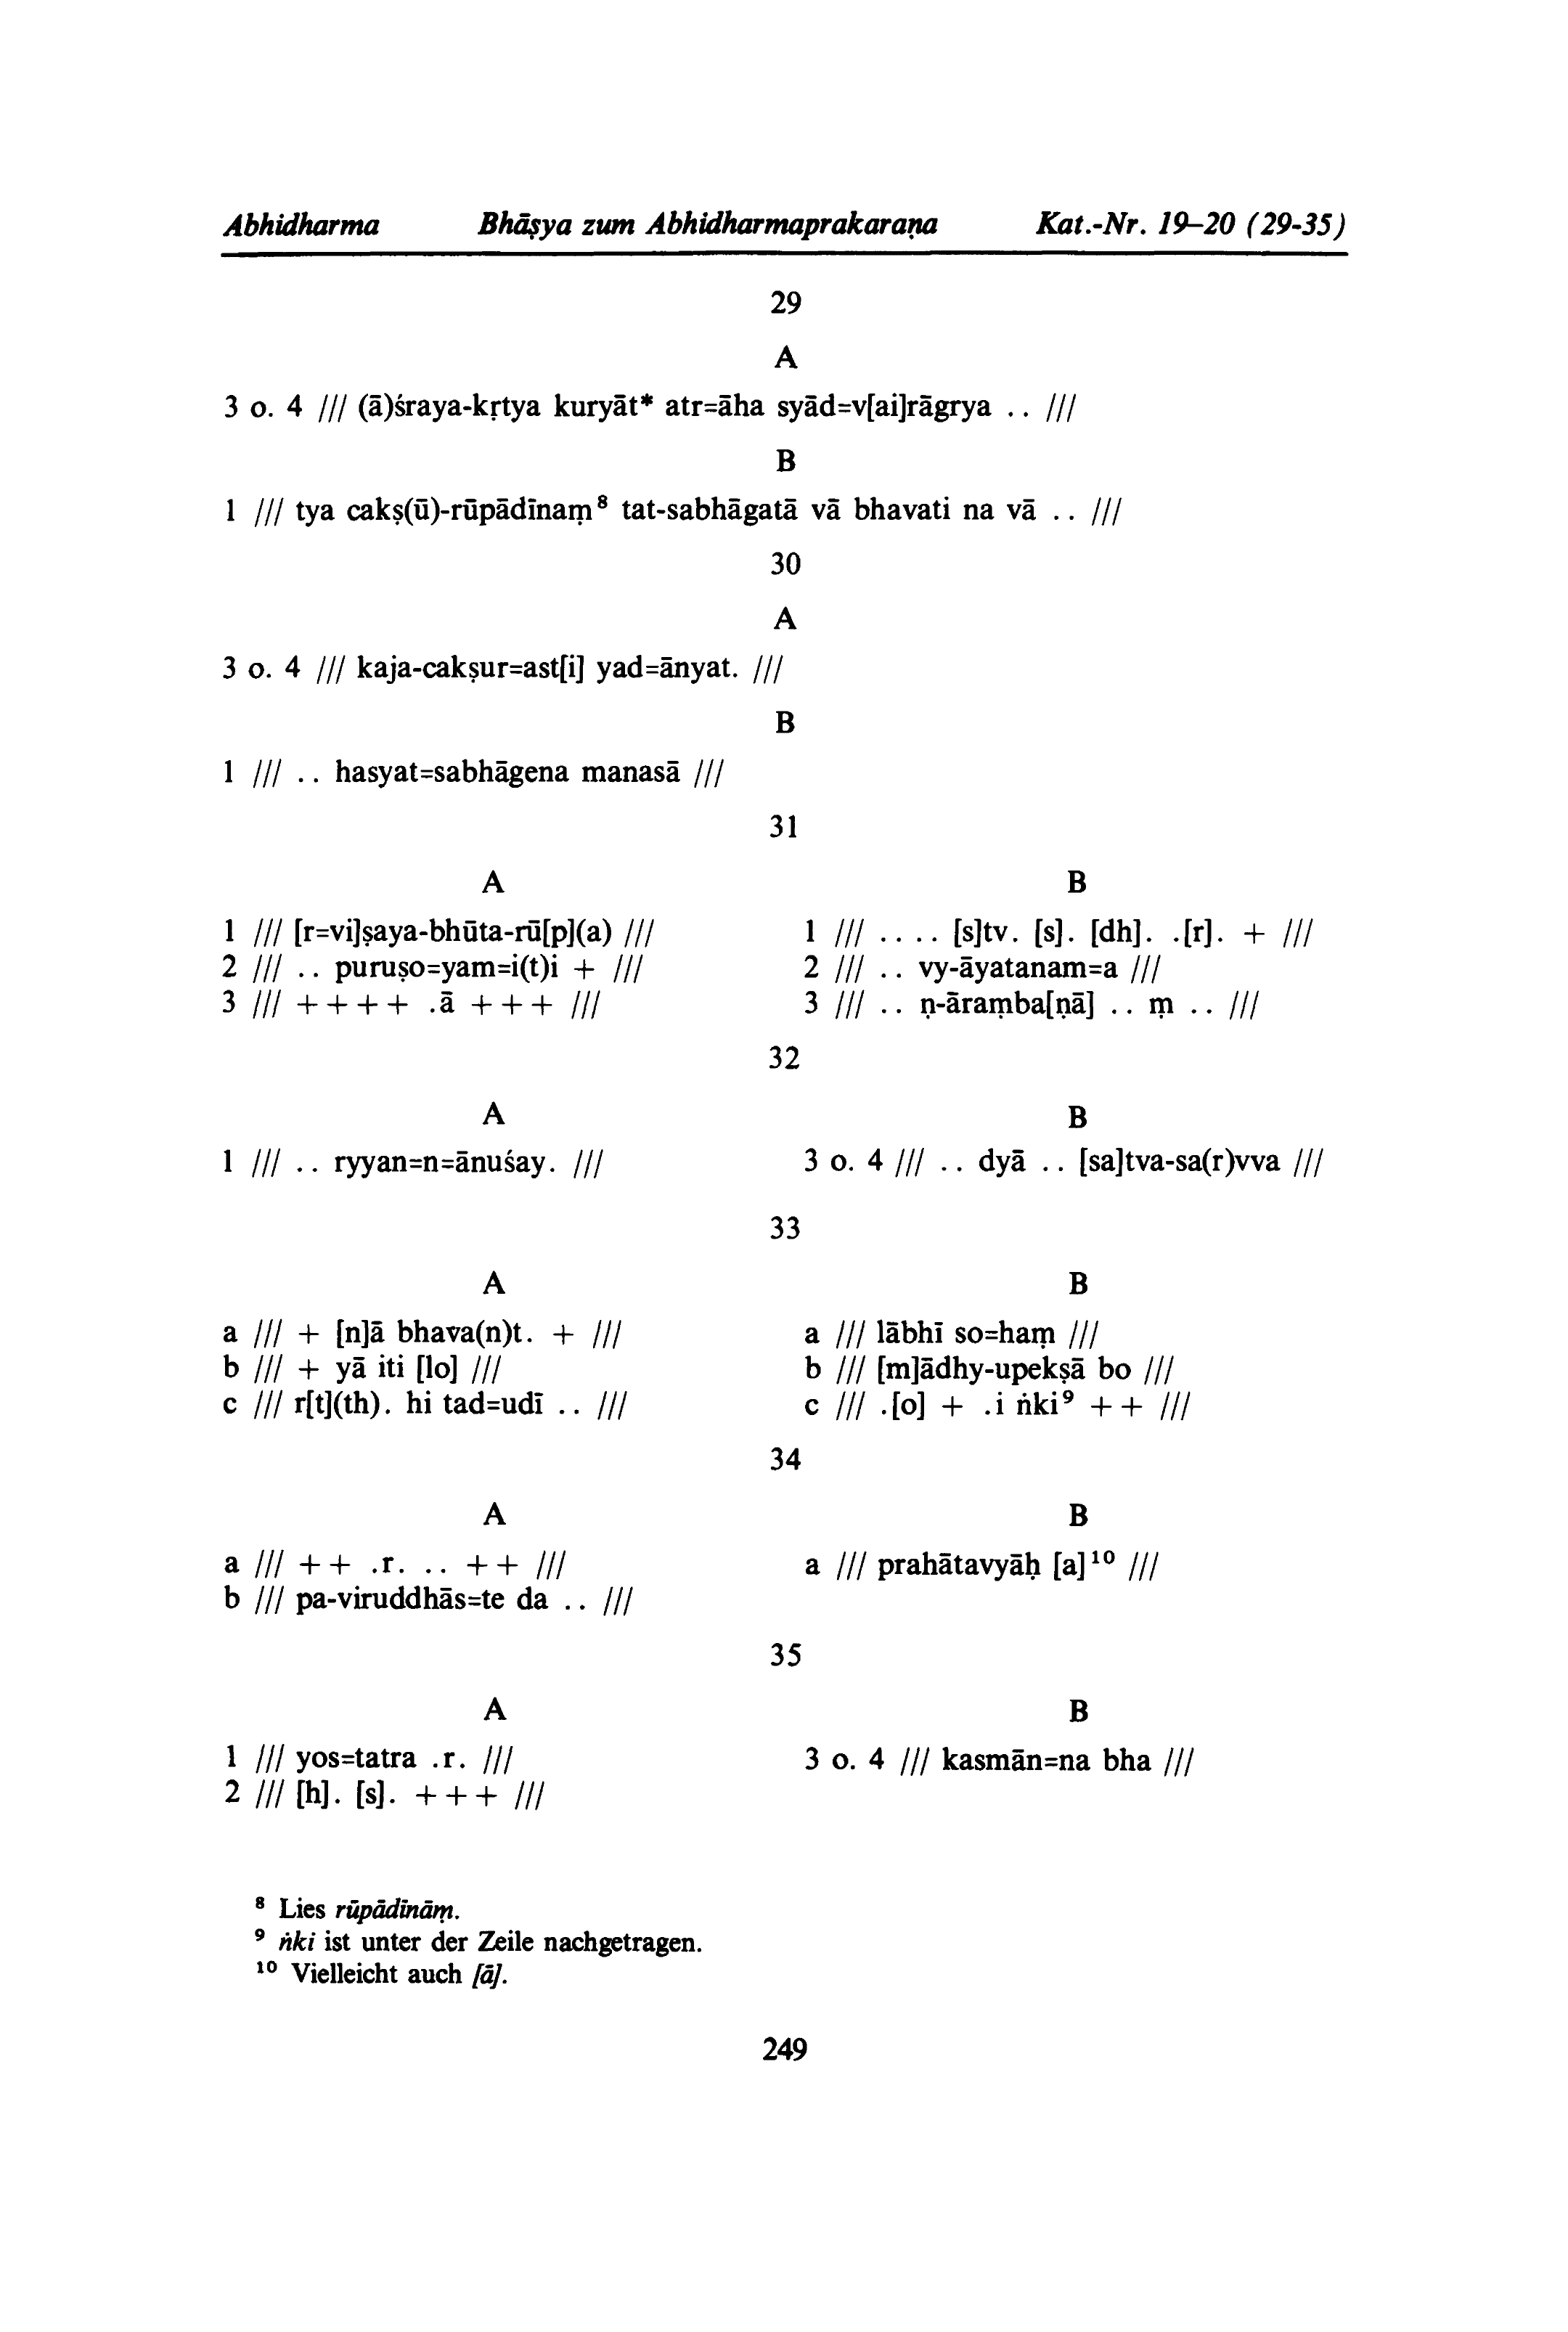 Abhidharma Bhāṣya zum Abhidharmaprakaraṇa Kat.-Nr. 19–20 (29-35)
29
A
3 o. 4 /// (ā)śraya-kṛtya kuryāt* atr=āha syād=v[ai]rāgrya .. ///
B
1 /// tya cakṣ(ū)-rūpādīnaṃ⁸ tat-sabhāgatā vā bhavati na vā .. ///
30
A
3 o. 4 /// kaja-cakṣur=ast[i] yad=ānyat. ///
B
1 /// .. hasyat=sabhāgena manasā ///
31
A
1 /// [r=vi]ṣaya-bhūta-rū[p](a) ///
2 /// .. puruṣo=yam=i(t)i + ///
3 /// + + + + .ā + + + ///
B
1 /// .. .. [s]tv. [s]. [dh]. .[r]. + ///
2 /// .. vy-āyatanam=a ///
3 /// .. ṇ-āraṃba[ṇā] .. ṃ .. ///
32
A
1 /// .. ryyan=n=ānuśay. ///
B
3 o. 4 /// .. dyā .. [sa]tva-sa(r)vva ///
33
A
a /// + [n]ā bhava(n)t. + ///
b /// + yā iti [lo] ///
c /// r[t](th). hi tad=udī .. ///
B
a /// lābhī so=haṃ ///
b /// [m]ādhy-upekṣā bo ///
c /// .[o] + .i ṅki⁹ + + ///
34
A
a /// + + .r. .. + + ///
b /// pa-viruddhās=te da .. ///
B
a /// prahātavyāḥ [a]¹⁰ ///
35
A
1 /// yos=tatra .r. ///
2 /// [h]. [s]. + + + ///
B
3 o. 4 /// kasmān=na bha ///
⁸ Lies rūpādīnāṃ.
⁹ ṅki ist unter der Zeile nachgetragen.
¹⁰ Vielleicht auch [ā].
249